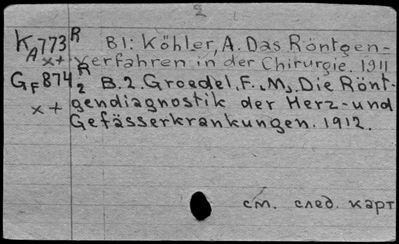 2
K A 773 R B1: Köhler, A. Das Röntgen-
x+ verfahren in der Chirurgie. 1911
G F 874 R 2 B.2. Groedel, F., M., Die Rönt-
x+ gendiagnostik der Herz- und
Gefässerkrankungen. 1912.
см. след. карт